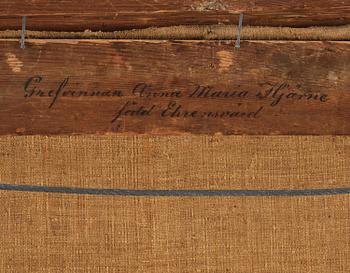 Grefvinnan Anna Maria Hjärne
född Ehrensvärd